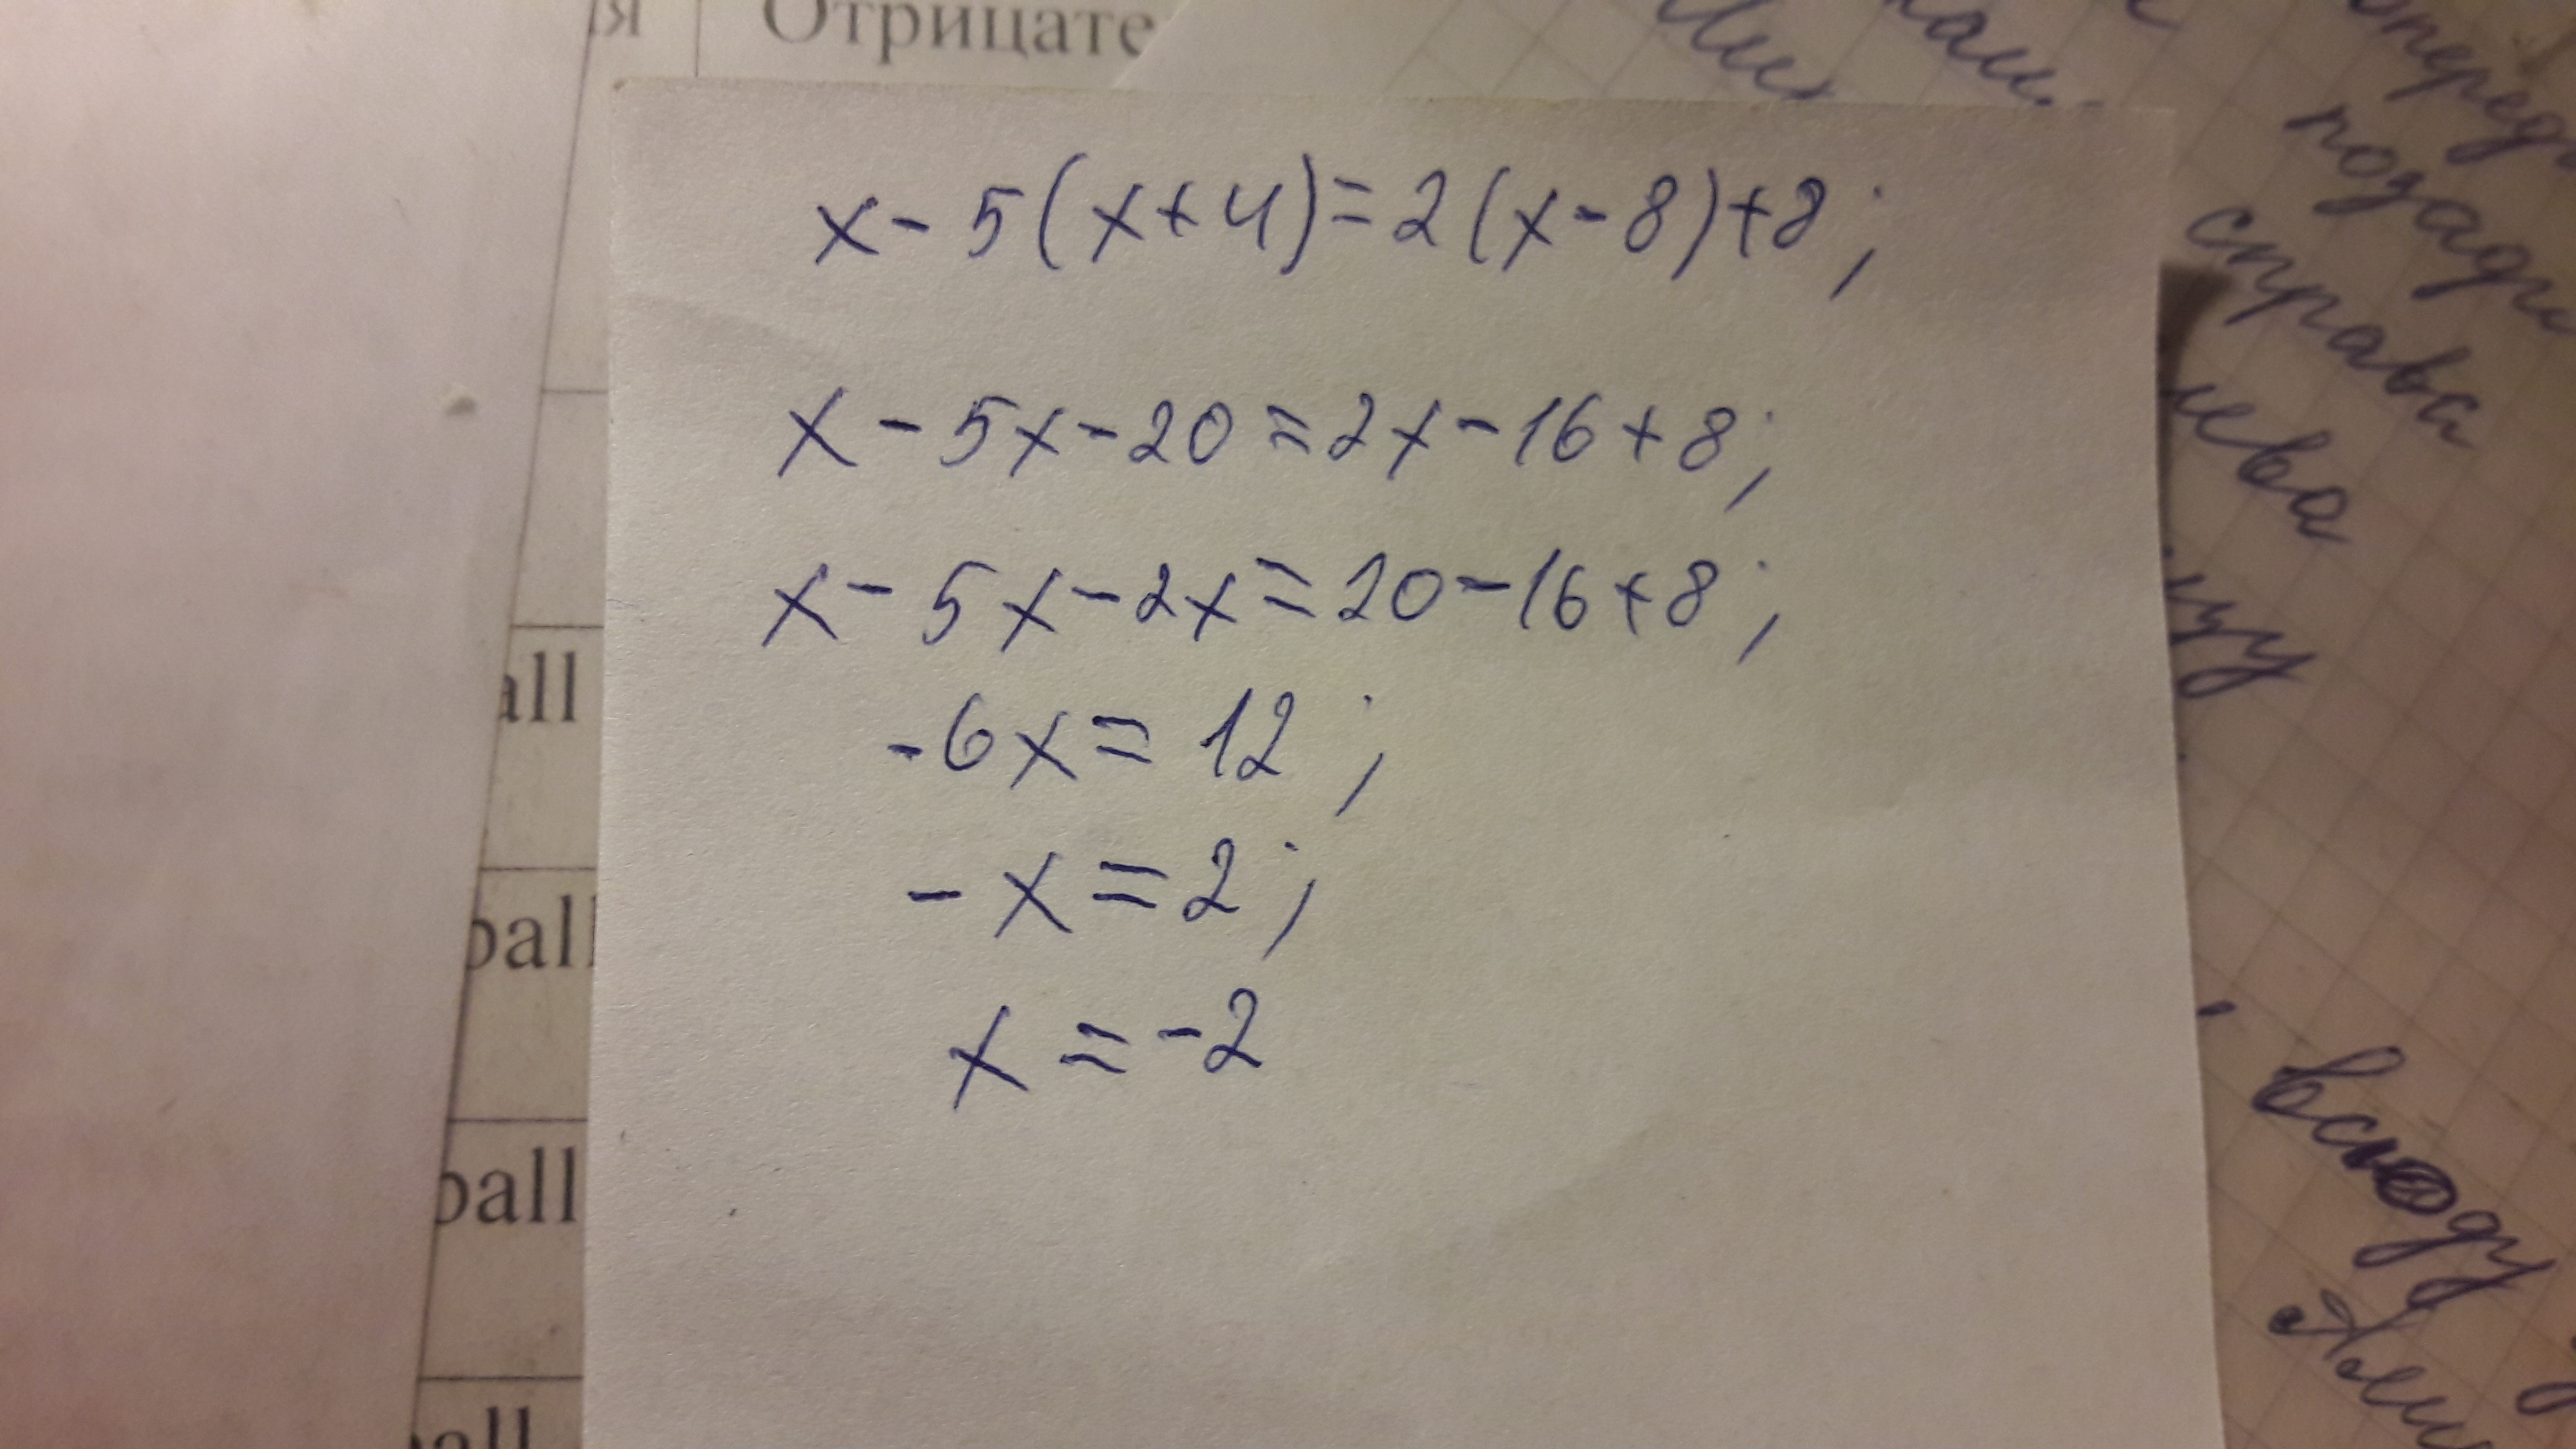 Отрицате
x - 5(x+4)=2(x-8)+8;
x - 5x - 20 = 2x - 16 + 8;
x - 5x - 2x = 20 - 16 + 8;
-6x = 12;
- x = 2;
x = -2
all
ball
ball
ball
позади
справа
всюду